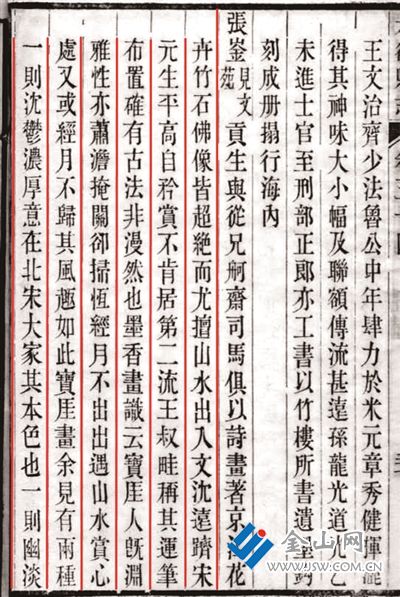 王文治齊少法魯公中年肆力於米元章秀健揮灑
得其神味大小幅及聯額傳流甚遠孫龍光道乙
未進士官至刑部正郎亦工書以竹樓所書遺
刻成册搨行海內
張崟見文苑貢生與從兄舸齋司馬俱以詩畫著京花
卉竹石佛像皆超絕而尤擅山水出入文沈遠躋宋
元生平高自矜賞不肯居第二流王叔畦稱其運筆
布置確有古法非漫然也墨香畫識云寶厓人旣淵
雅性亦蕭澹掩關卻掃恆經月不出出遇山水賞心
處又或經月不歸其風趣如此寶厓畫余見有兩種
一則沈鬱濃厚意在北宋大家其本色也一則幽淡
金山网
WWW.JSW.COM.CN